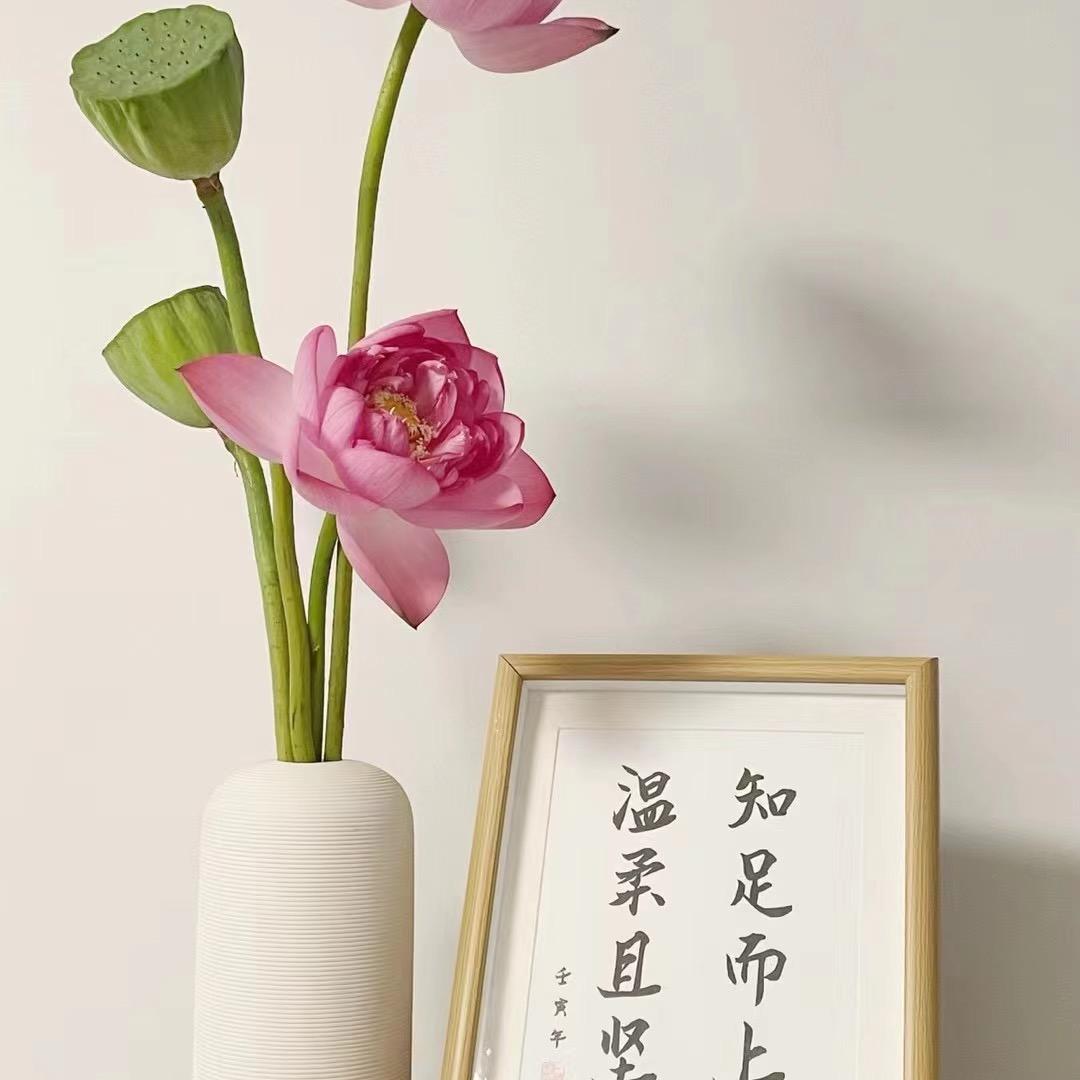 知足而上
温柔且坚
壬寅年